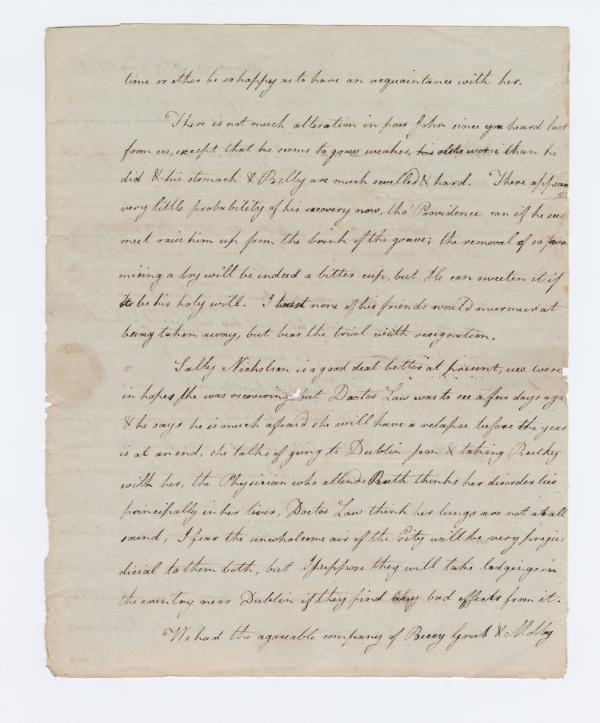 time or other be so happy as to have an acquaintance with her.
There is not much alteration in poor John since you heard last
from us, except that he seems to grow weaker, than he
did & his stomach & Belly are much swelled & hard. There appears
very little probability of his recovery now, tho' Providence can if he sees
meet raise him up from the brink of the grave; the removal of so pro
mising a boy will be indeed a bitter cup, but He can sweeten it if
it be his holy will. I trust none of his friends would murmur at
being taken away, but bear the trial with resignation.
Sally Nicholson is a good deal better at present, we were
in hopes she was recovering but Doctor Law was to see a few days ago
& he says he is much afraid she will have a relapse before the year
is at an end, she talks of going to Dublin soon & taking Ruthey
with her, the Physician who attends Ruth thinks her disorder lies
principally in her liver, Doctor Law think her lungs are not at all
sound, I fear the unwholsome air of the City will be very preju
dicial to them both, but I suppose they will take lodgings in
the country near Dublin if they find any bad effects from it.
We had the agreeable company of Beccy Grub & Molly